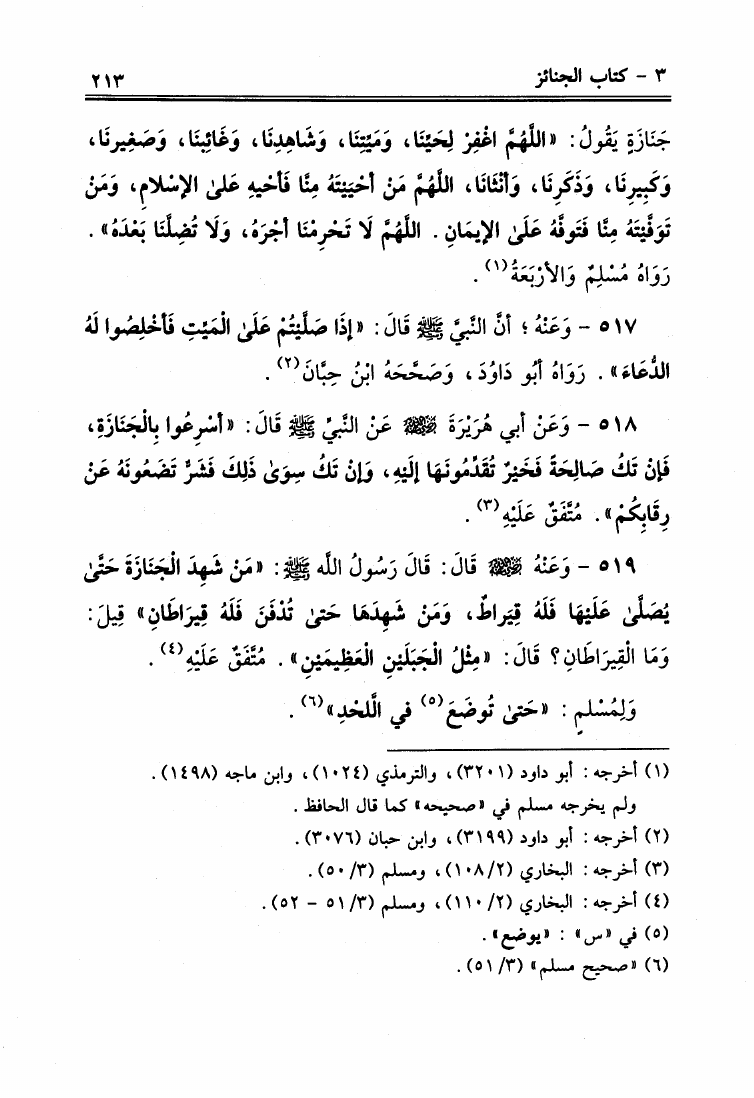 ٣ - كتاب الجنائز ٢١٣
جَنَازَةٍ يَقُولُ: «اللَّهُمَّ اغْفِرْ لِحَيِّنَا، وَمَيِّتِنَا، وَشَاهِدِنَا، وَغَائِبِنَا، وَصَغِيرِنَا،
وَكَبِيرِنَا، وَذَكَرِنَا، وَأُنْثَانَا، اللَّهُمَّ مَنْ أَحْيَيْتَهُ مِنَّا فَأَحْيِهِ عَلىٰ الإسْلامِ، وَمَنْ
تَوَفَّيْتَهُ مِنَّا فَتَوفَّهُ عَلَىٰ الإيمَانِ. اللَّهُمَّ لَا تَحْرِمْنَا أَجْرَهُ، وَلَا تُضِلَّنَا بَعْدَهُ».
رَوَاهُ مُسْلِمٌ وَالأرْبَعَةُ(١).
٥١٧ - وَعَنْهُ؛ أنَّ النَّبيَّ ﷺ قَالَ: «إذَا صَلَّيْتُمْ عَلَىٰ الْمَيِّتِ فَأَخْلِصُوا لَهُ
الدُّعَاءَ». رَوَاهُ أَبُو دَاوُدَ، وَصَحَّحَهُ ابْنُ حِبَّانَ(٢).
٥١٨ - وَعَنْ أبي هُرَيْرَةَ رضي الله عنه عَنِ النَّبيِّ ﷺ قَالَ: «أَسْرِعُوا بِالْجَنَازَةِ،
فَإنْ تَكُ صَالِحَةً فَخَيْرٌ تُقَدِّمُونَهَا إلَيْهِ، وَإنْ تَكُ سِوَىٰ ذَلِكَ فَشَرٌّ تَضَعُونَهُ عَنْ
رِقَابِكُمْ». مُتَّفَقٌ عَلَيْهِ(٣).
٥١٩ - وَعَنْهُ رضي الله عنه قَالَ: قَالَ رَسُولُ اللَّه ﷺ: «مَنْ شَهِدَ الْجَنَازَةَ حَتَّىٰ
يُصَلَّىٰ عَلَيْهَا فَلَهُ قِيَراطٌ، وَمَنْ شَهِدَهَا حَتىٰ تُدْفَنَ فَلَهُ قِيرَاطَانِ» قِيلَ:
وَمَا الْقِيرَاطَانِ؟ قَالَ: «مِثْلُ الْجَبَلَيْنِ الْعَظِيمَيْنِ». مُتَّفَقٌ عَلَيْهِ(٤).
وَلِمُسْلمٍ: «حَتىٰ تُوضَعَ(٥) في اللَّحْدِ»(٦).
(١) أخرجه: أبو داود (٣٢٠١)، والترمذي (١٠٢٤)، وابن ماجه (١٤٩٨).
ولم يخرجه مسلم في «صحيحه» كما قال الحافظ.
(٢) أخرجه: أبو داود (٣١٩٩)، وابن حبان (٣٠٧٦).
(٣) أخرجه: البخاري (١٠٨/٢)، ومسلم (٥٠/٣).
(٤) أخرجه: البخاري (١١٠/٢)، ومسلم (٥١/٣ - ٥٢).
(٥) في «س»: «يوضع».
(٦) «صحيح مسلم» (٥١/٣).